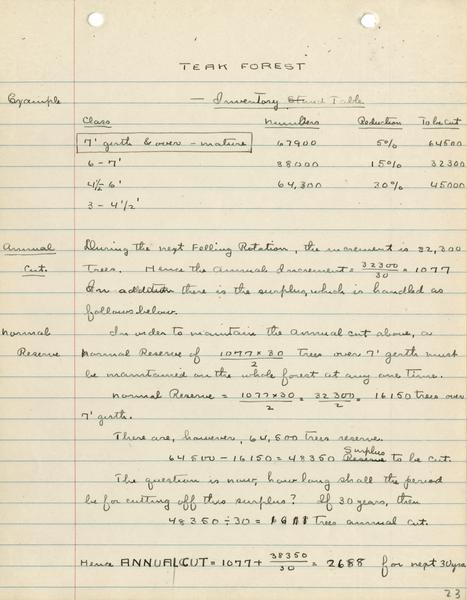 TEAK FOREST
Example — Inventory Stand Table
Class Numbers Reduction To be cut
7' girth & over - mature 67900 5% 64500
6 - 7' 88000 15% 32300
4½ - 6' 64,300 30% 45000
3 - 4½'
Annual During the next Felling Rotation, the increment is 32,300
Cut. Trees. Hence the Annual Increment = 32300/30 = 1077
In addition there is the surplus, which is handled as
follows below.
Normal In order to maintain the annual cut above, a
Reserve Normal Reserve of 1077 x 30/2 Trees over 7' girth must
be maintained on the whole forest at any one time.
Normal Reserve = 1077 x 30/2 = 32300/2 = 16150 trees over
7' girth.
There are, however, 64,500 trees reserve.
Surplus
64500 - 16150 = 48350 Reserve to be cut.
The question is now, how long shall the period
be for cutting off this surplus? If 30 years, then
48350 ÷ 30 = 1611 Trees annual cut.
Hence ANNUAL CUT = 1077 + 38350/30 = 2688 for next 30 yrs
23